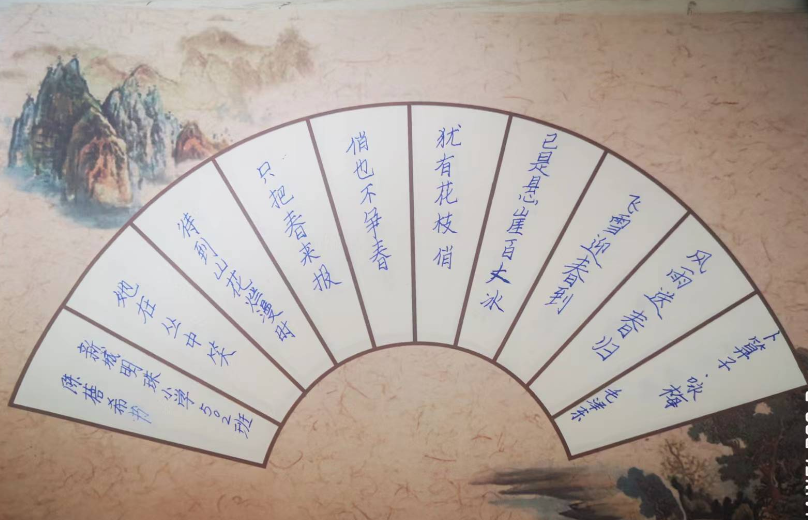 卜算子·咏梅
毛泽东
风雨送春归
飞雪迎春到
已是悬崖百丈冰
犹有花枝俏
俏也不争春
只把春来报
待到山花烂漫时
她在丛中笑
新城明珠小学502班
陈蓓希